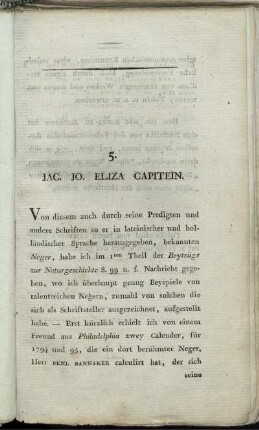 5.
JAC. JO. ELIZA CAPITEIN.
Von diesem auch durch seine Predigten und
andere Schriften so er in lateinischer und hol-
ländischer Sprache herausgegeben, bekannten
Neger, habe ich im 1ten Theil der Beyträge
zur Naturgeschichte S. 99 u. f. Nachricht gege-
ben, wo ich überhaupt genug Beyspiele von
talentreichen Negern, zumal von solchen die
sich als Schriftsteller ausgezeichnet, aufgestellt
habe. — Erst kürzlich erhielt ich von einem
Freund aus Philadelphia zwey Calender, für
1794 und 95, die ein dort berühmter Neger,
Herr BENJ. BANNAKER calculirt hat, der sich
seine